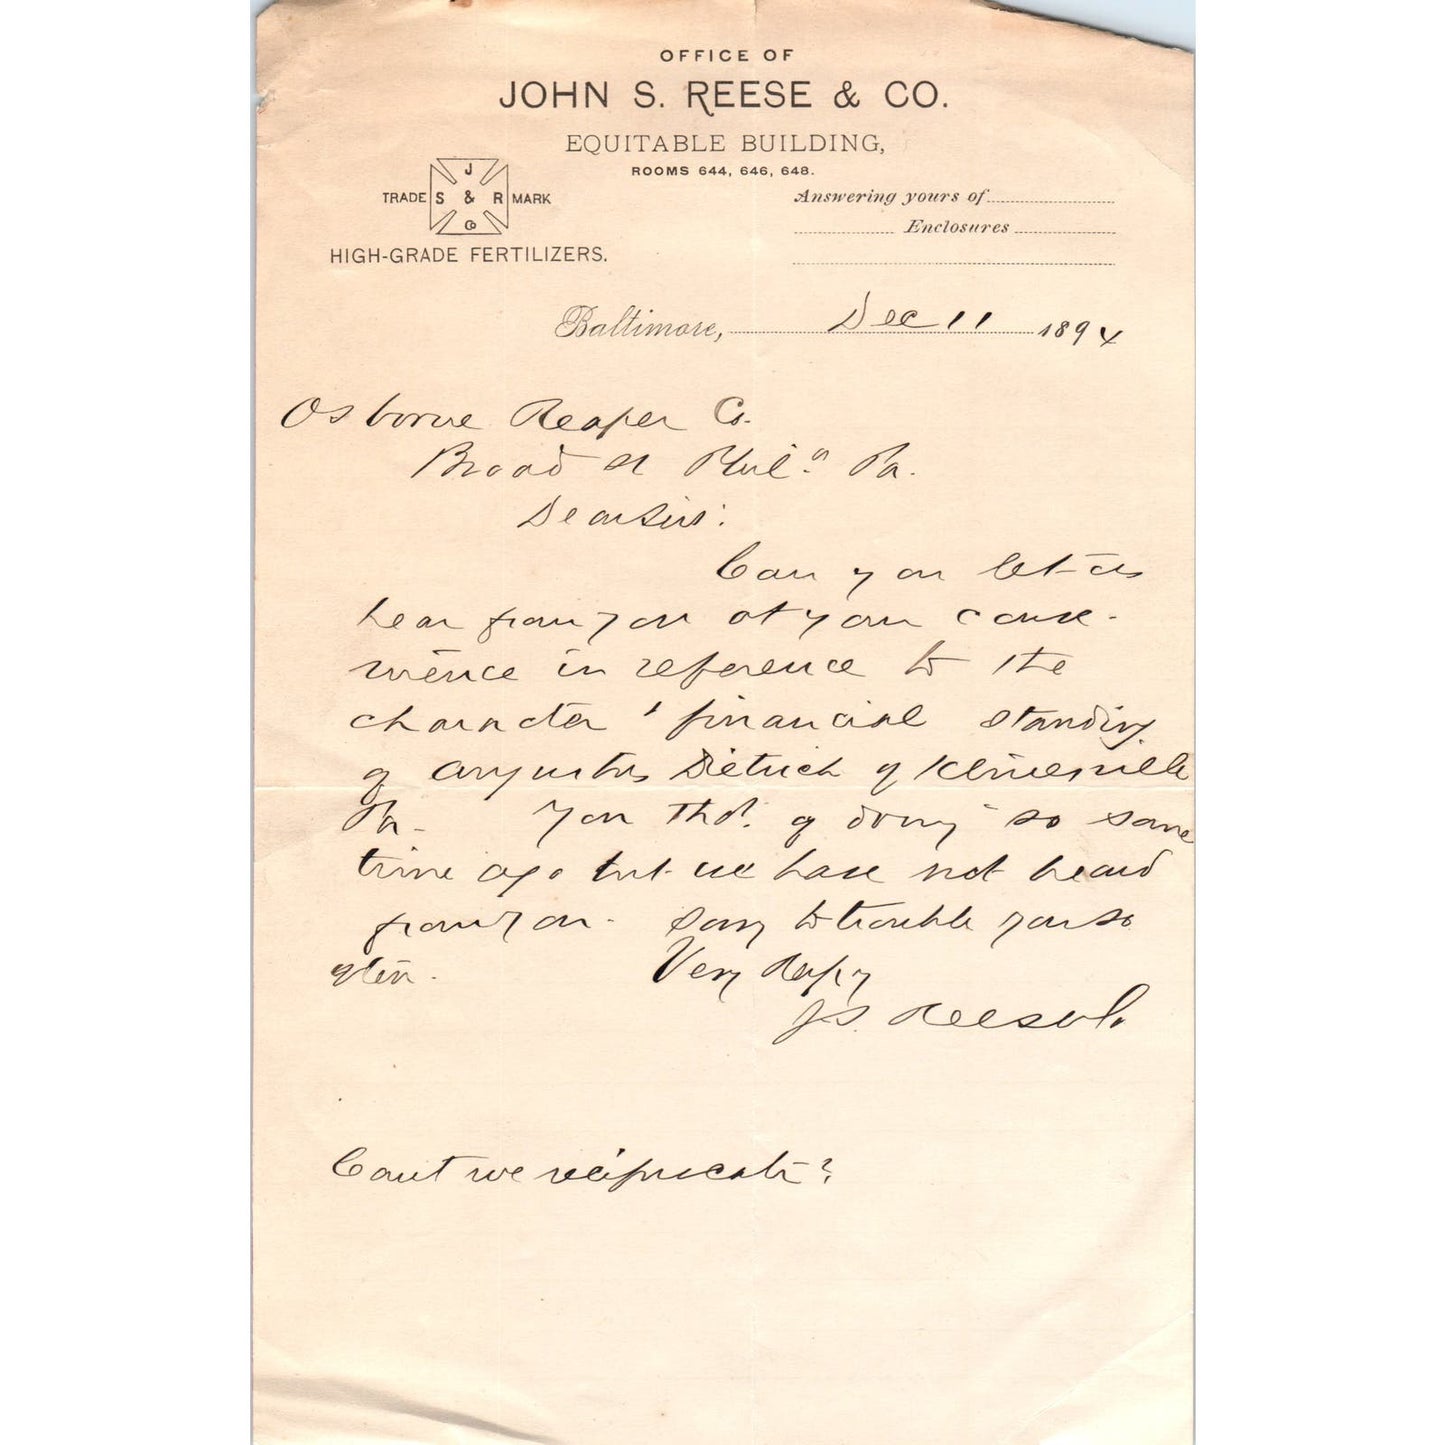 OFFICE OF
JOHN S. REESE & CO.
EQUITABLE BUILDING,
ROOMS 644, 646, 648.
J
TRADE S & R MARK
Co
HIGH-GRADE FERTILIZERS.
Answering yours of
Enclosures
Baltimore, Dec 11 1894
Osborne Reaper Co.
Broad St Phila Pa.
Dear Sirs:
Can you let us
hear from you at your conve-
nience in reference to the
character & financial standing
of Augustus Dietrich of Klinesville
Pa. You tho't of doing so some
time ago but we have not heard
from you. Sorry to trouble you so
often.
Very Respy
J.S. Reese & Co.
Can't we reciprocate?